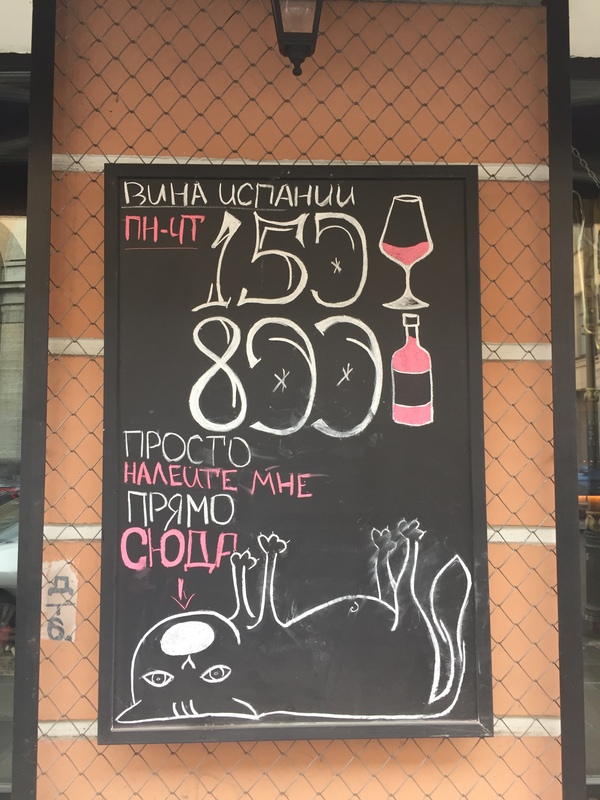 ВИНА ИСПАНИИ
ПН-ЧТ 150
800
ПРОСТО
НАЛЕЙТЕ МНЕ
ПРЯМО
СЮДА